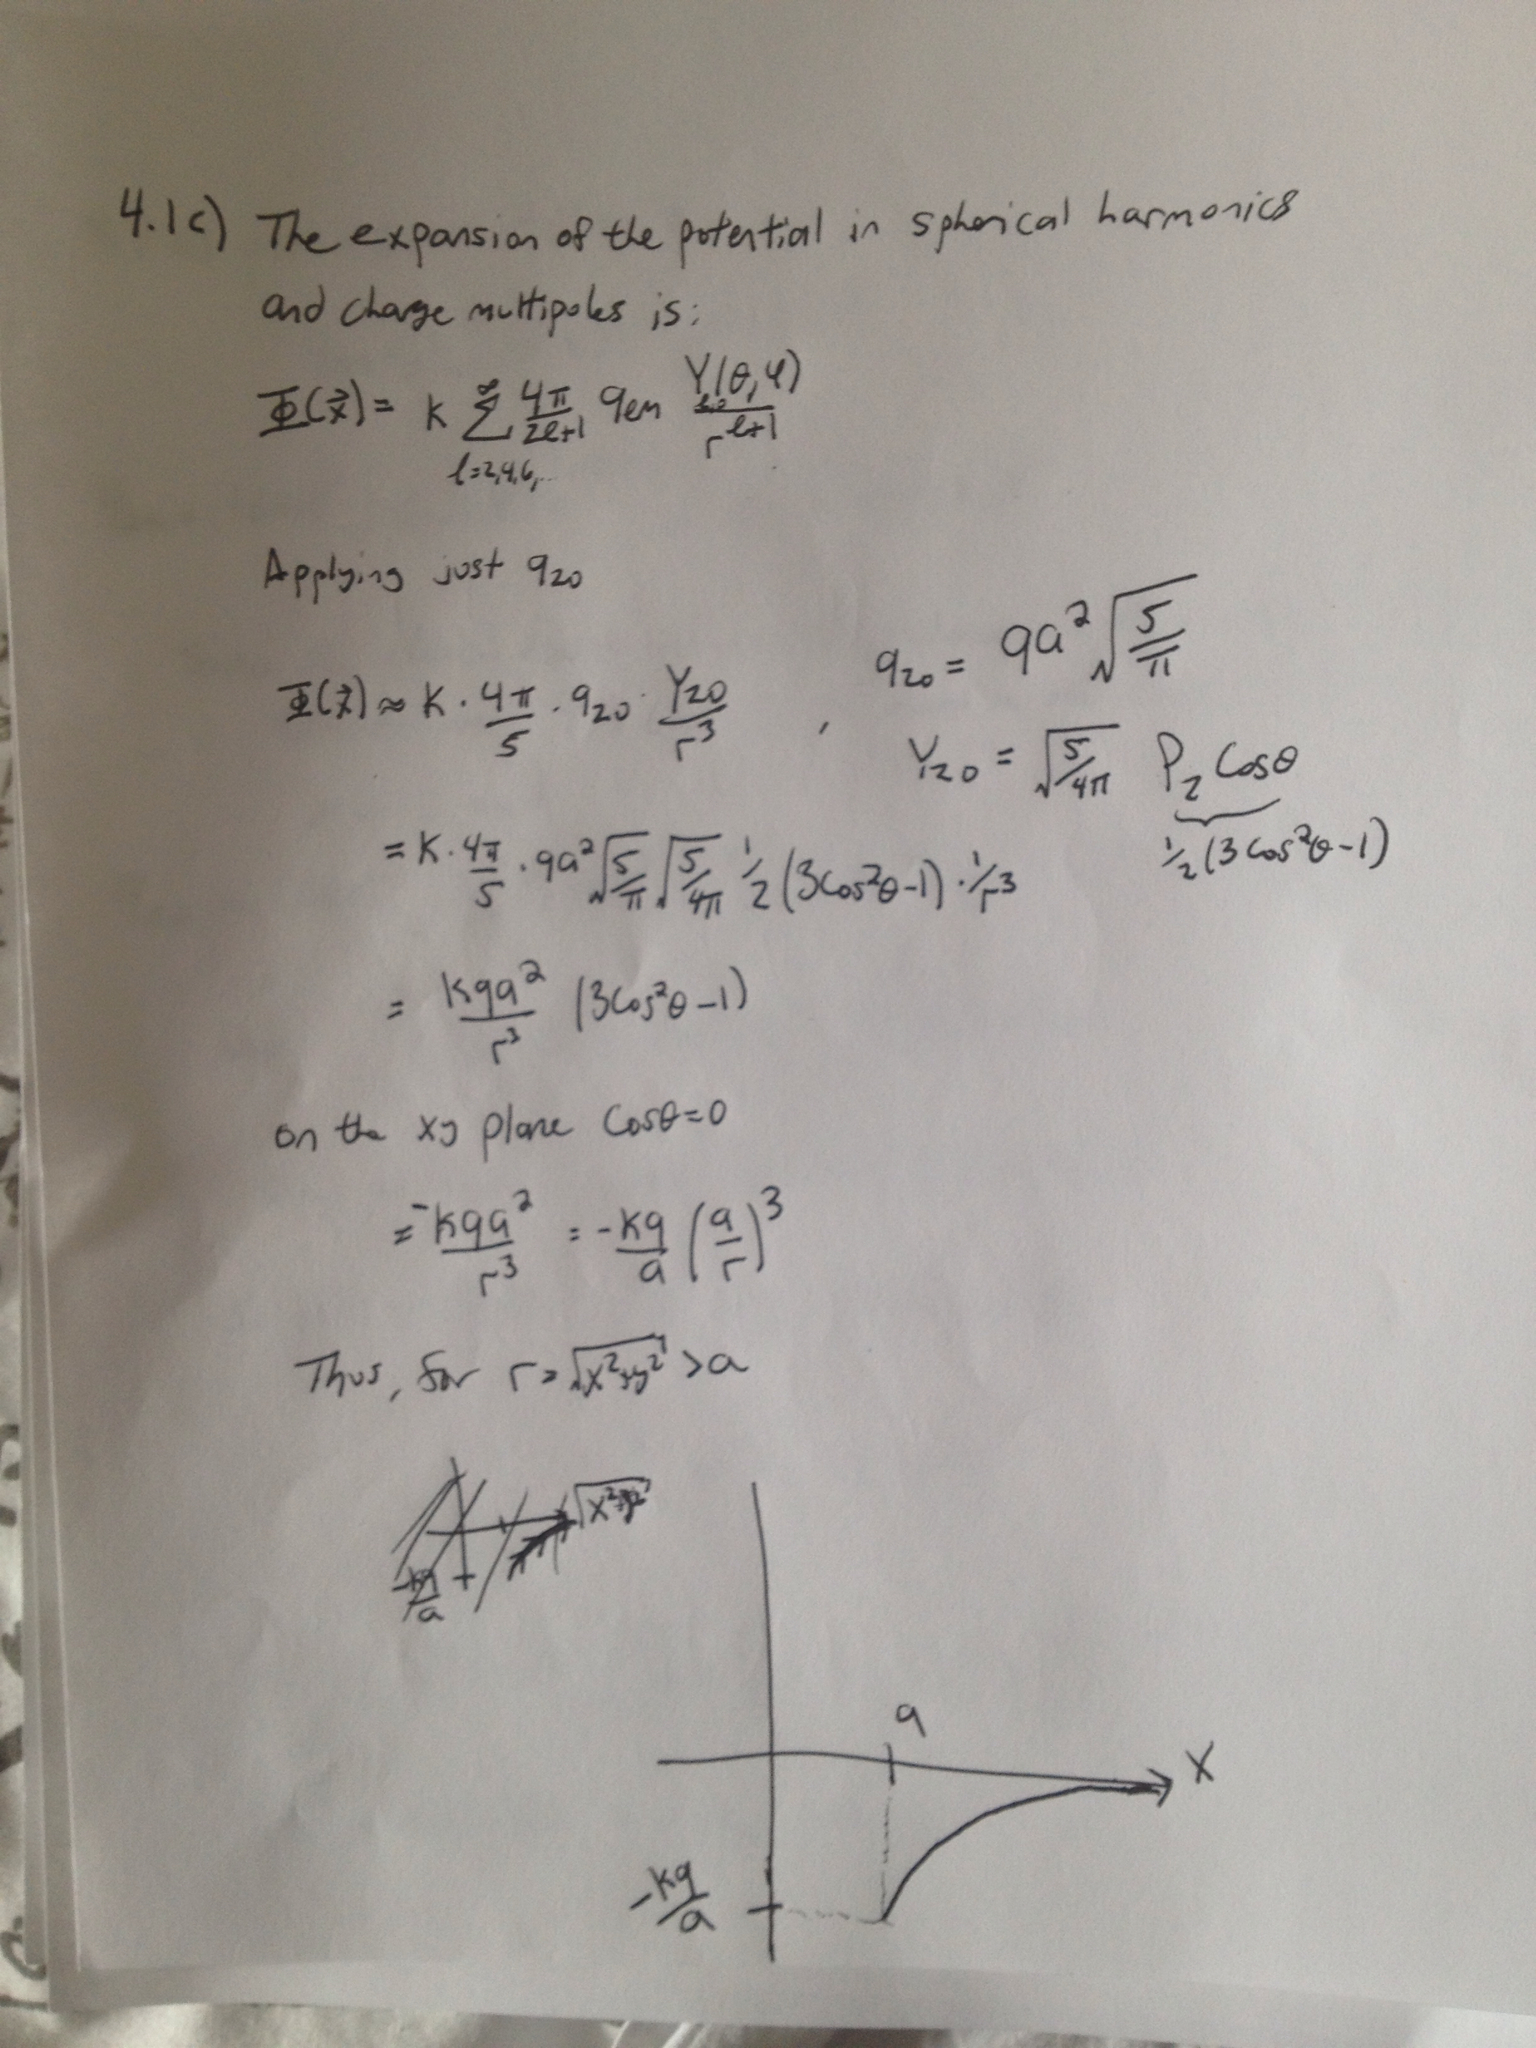 4.1c) The expansion of the potential in spherical harmonics
and charge multipoles is:
Φ(x⃗) = K ∑_{l=2,4,6,..}^{∞} 4π/2l+1 qlm Yl,0(θ,φ)/r^{l+1}
Applying just q20
Φ(x⃗) ≈ K · 4π/5 · q20 · Y20/r³ , q20 = qa² √(5/π)
Y20 = √(5/4π) P2 Cosθ
½(3Cos²θ-1)
= K · 4π/5 · qa² √(5/π) √(5/4π) ½ (3Cos²θ-1) · 1/r³
= Kqa²/r³ (3Cos²θ-1)
on the xy plane Cosθ=0
= -Kqa²/r³ = -Kq/a (a/r)³
Thus, for r = √(x²+y²) > a
√(x²+y²)
-Kq/a
a
X
-Kq/a